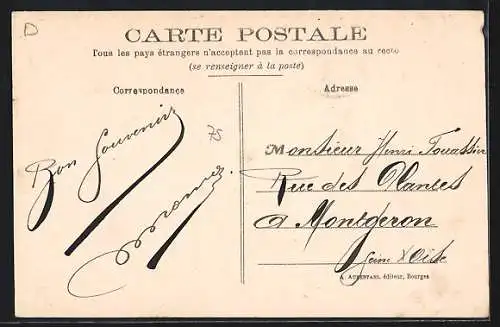 D
CARTE POSTALE
Tous les pays étrangers n'acceptent pas la correspondance au recto
(se renseigner à la poste)
Correspondance
Adresse
75
Bon Souvenir
Monsieur Henri
Rue des Plantes
à Montgeron
Seine & Oise
A. AUXENFANS, éditeur, Bourges